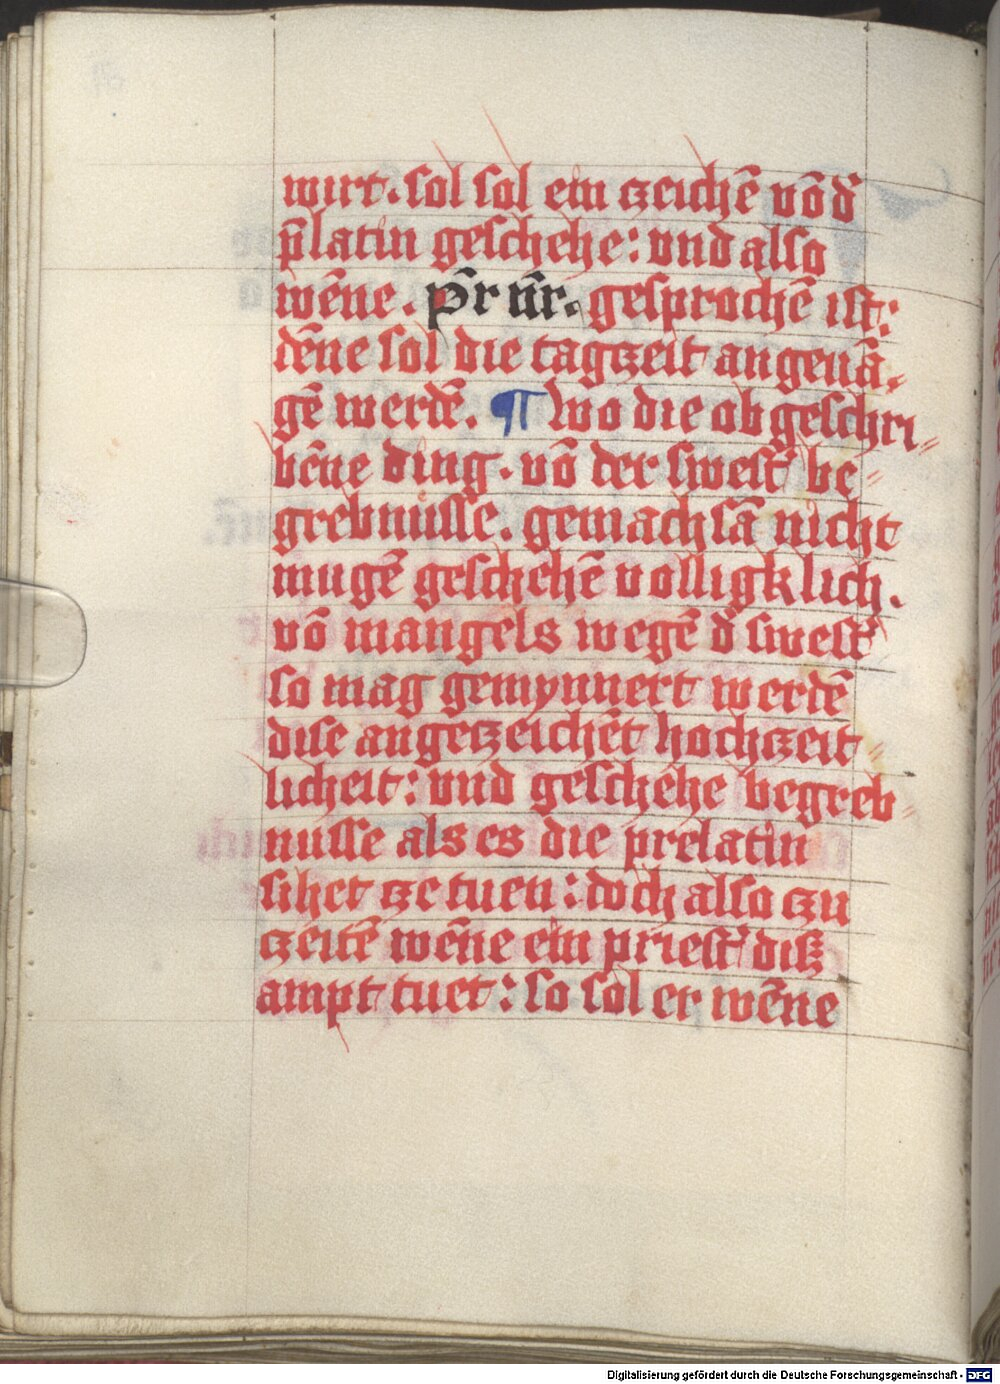 wirt. sol sol ein czeichē vō d̕
p̄latin geschehe: vnd also
wēne. pr̄ nr̄. gesprochē ist:
dēne sol die tagczeit angeuā⸗
gē werdē. ¶ Wo die ob geschri⸗
bēne ding. vō der swest̕ be⸗
grebnusse. gemachsā nicht
mugē geschehē volligklich.
vō mangels wegē d̕ swest̕
so mag gemynnert werdē
dise angeczeichēt hochczeit⸗
licheit: vnd geschehe begreb⸗
nusse als es die prelatin
sihet cze tuen: doch also czu
czeitē wēne ein priest̕ diß
ampt tuet: so sol er wēne
Digitalisierung gefördert durch die Deutsche Forschungsgemeinschaft - DFG